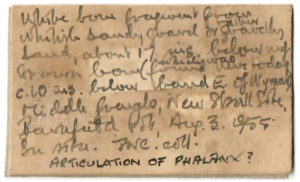 White bone fragment from
whitish sandy gravel or gravelly
sand, about 17 ins. below
brown
c. 10 ins. below band E. of Wymer's
Middle Gravels, New Skull Site,
Barnfield Pit, Aug. 3. 1955
In situ. coll.
ARTICULATION OF PHALANX?